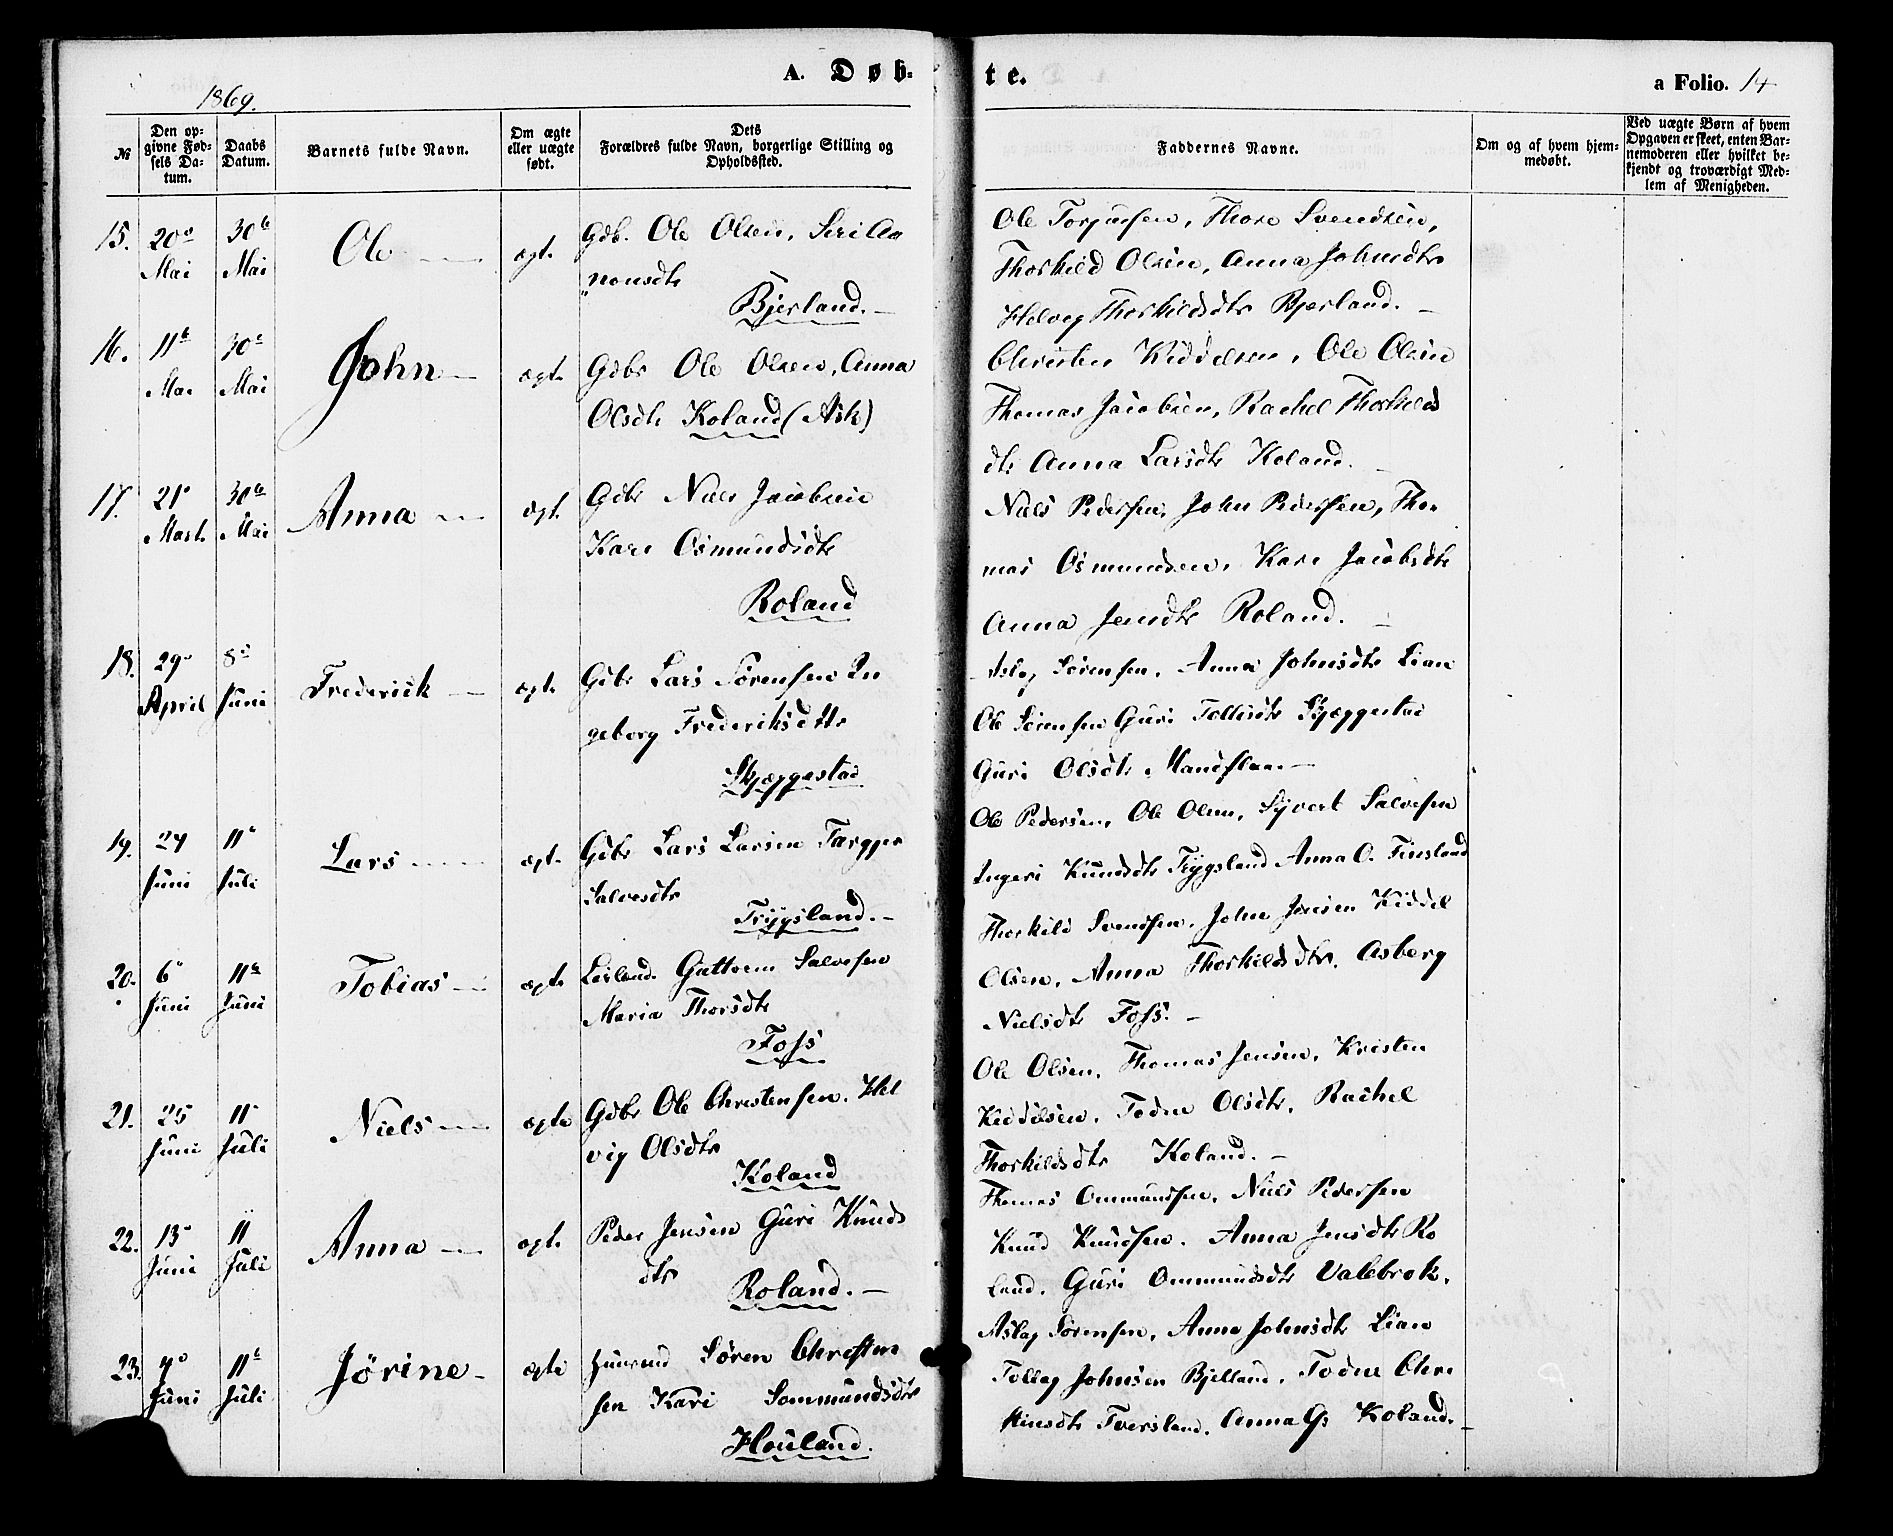 A. Døb-
te.
a Folio. 14
1869.
№
Den op-
givne Fød-
sels Da-
tum.
Daabs
Datum.
Barnets fulde Navn.
Om ægte
eller uægte
født.
Dets
Forældres fulde Navn, borgerlige Stilling og
Opholdssted.
Faddernes Navne.
Om og af hvem hjem-
medøbt.
Ved uægte Børn af hvem
Opgaven er skeet, enten Bar-
nemoderen eller hvilket be-
kjendt og troværdigt Med-
lem af Menigheden.
15. 20de Mai 30te Mai
Ole
ægt.
Gdb. Ole Olsen, Siri Aa
nonsdtr
Bjerland.
Ole Torjusen, Thore Svendsen,
Thorkild Olsen, Anna Johnsdtr
Helvig Thorkildsdtr Bjerland.
16. 11te Mai 30te Mai
John
ægt.
Gdbr Ole Olsen, Anna
Olsdtr Koland (Ask)
Christen Kiddelsen, Ole Olsen
Thomas Jacobsen, Rachel Thorkilds
dtr Anna Larsdtr Koland.
17. 21 Marts 30te Mai
Anna
ægt.
Gdbr Niels Jacobsen
Kari Osmundsdtr
Roland
Niels Pedersen, John Pedersen, Tho-
mas Osmundsen, Kari Jacobsdtr
Anna Jensdtr Roland.
18. 29 April 8de Juni
Frederick
ægte
Gdbr Lars Sørensen In
geborg Frederiksdtr
Skjæggestad
Aslag Sørensen, Anna Johnsdtr Lian
Ole Sørensen Guri Tellisdtr Skjæggestad
Guri Olsdtr, Mandflaa.
19. 24 Juni 11 Juli
Lars
ægt.
Gdbr Lars Larsen Targjer
Salvesdtr
Trygsland.
Ole Pedersen, Ole Olsen, Syvert Salvesen
Ingeri Knudsdtr Trygsland Anna O. Finsland
20. 6 Juni 11te Juni
Tobias
ægte
Leilend. Guttorm Salvesen
Maria Thorsdtr
Foss
Thorkild Svendsen, John Jensen Kiddel
Olsen, Anna Thorkildsdtr, Asberg
Nielsdtr Foss.
21. 25 Juni 11 Juli
Niels
ægte
Gdbr Ole Christensen, Hel
vig Olsdtr
Koland
Ole Olsen, Thomas Jensen, Kristen
Kiddelsen, Todne Olsdtr, Rachel
Thorkildsdtr Koland.
22. 13 Juni 11 Juli
Anna
ægt.
Peder Jensen Guri Knuds
dtr
Roland.
Thomas Ommundsen, Niels Pedersen
Knud Knudsen, Anna Jensdtr Ro
land, Guri Ommundsdtr Valebrok,
23. 7de Juni 11te Juli
Jørine
ægte
Huusmd Søren Christen
sen Kari Sommundsdtr
Houland.
Aslag Sørensen, Anna Johnsdtr Lian
Tellag Johnsen Bjelland, Todne Chri
stensdtr Tversland, Anna G. Koland.